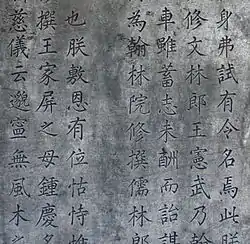 身弗試有令名焉此朕
修文林郎王憲武乃幹
車雖蓄志未酬而詒謀
為翰林院修撰儒林郎
也朕敷恩有位怙恃惟
撰王家屏之母鍾慶名
慈儀云邈寧無風木之